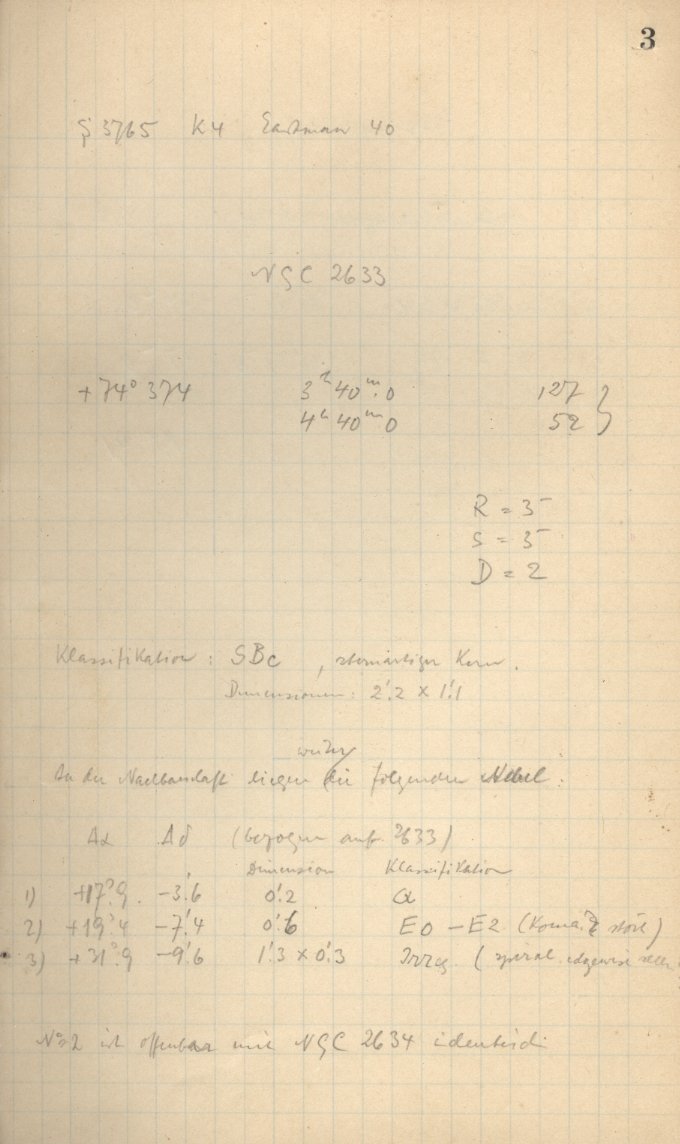 3
S 3765 K4 Eastman 40
NGC 2633
+74° 374 3h 40m.0 127
4h 40m 0 52 }
R = 3-
S = 3-
D = 2
Klassifikation : SBc , sternartiger Kern.
Dimensionen: 2'.2 x 1'.1
weiter
In der Nachbarschaft liegen die folgenden Nebel :
Δα Δδ (bezogen auf 2633)
Dimension Klassifikation
1) +17s.9 -3'.6 0'.2 α
2) +19s.4 -7'.4 0'.6 E0 - E2 (Koma? stört)
3) +31s.9 -9'.6 1'.3 x 0'.3 Irreg. (spiral edgewise
No 2 ist offenbar mit NGC 2634 identisch